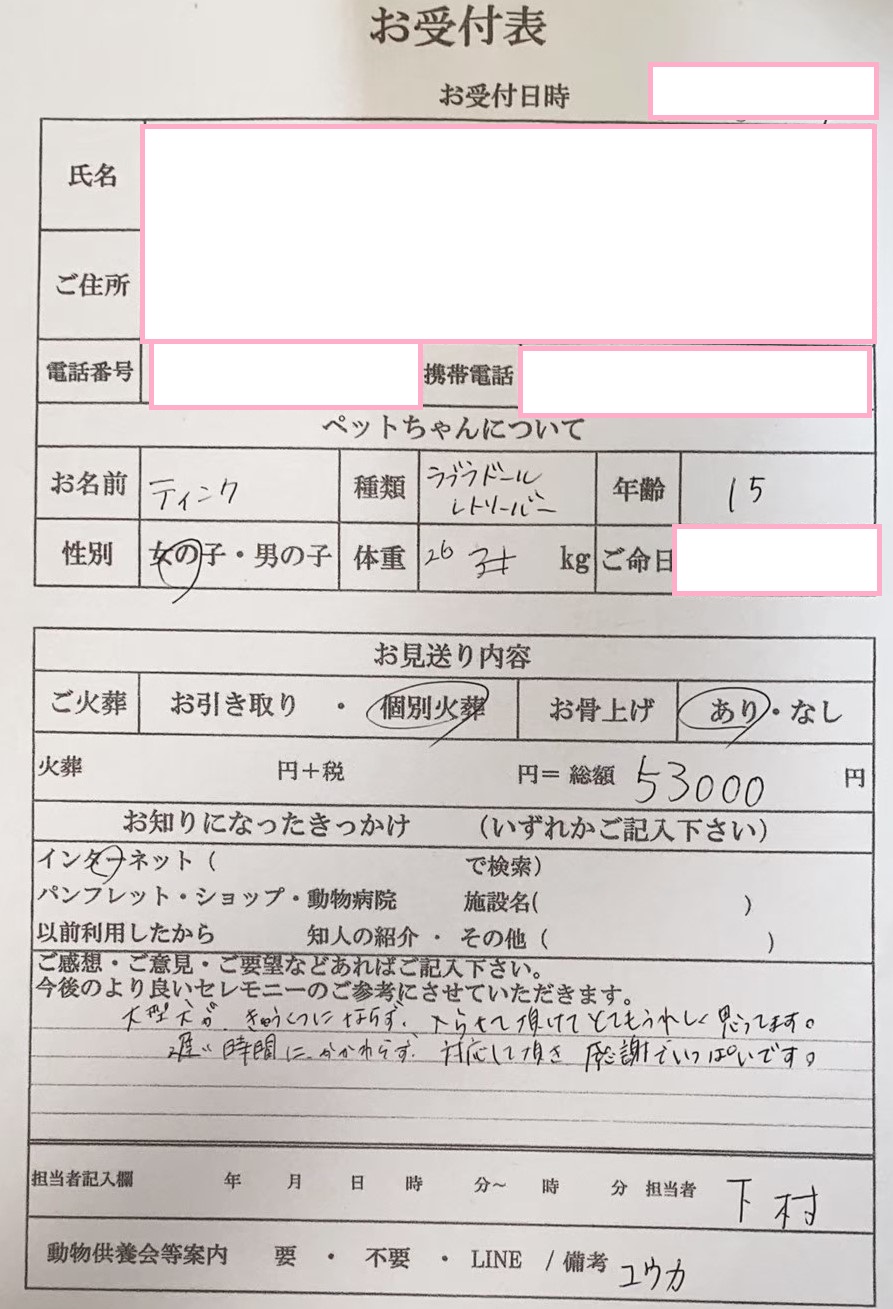 お受付表
お受付日時
氏名
ご住所
電話番号 携帯電話
ペットちゃんについて
お名前 ティンク 種類 ラブラドール レトリーバー 年齢 15
性別 女の子・男の子 体重 26 kg ご命日
お見送り内容
ご火葬 お引き取り ・ 個別火葬 お骨上げ あり・なし
火葬 円+税 円= 総額 53000 円
お知りになったきっかけ (いずれかご記入下さい)
インターネット ( で検索)
パンフレット・ショップ・動物病院 施設名( )
以前利用したから 知人の紹介 ・ その他 ( )
ご感想・ご意見・ご要望などあればご記入下さい。
今後のより良いセレモニーのご参考にさせていただきます。
大型犬が、きゅうくつにならず、入らせて頂けてとてもうれしく思ってます。
遅い時間に、かかわらず、対応して頂き 感謝でいっぱいです。
担当者記入欄 年 月 日 時 分~ 時 分 担当者 下村
動物供養会等案内 要 ・ 不要 ・ LINE / 備考 ユウカ